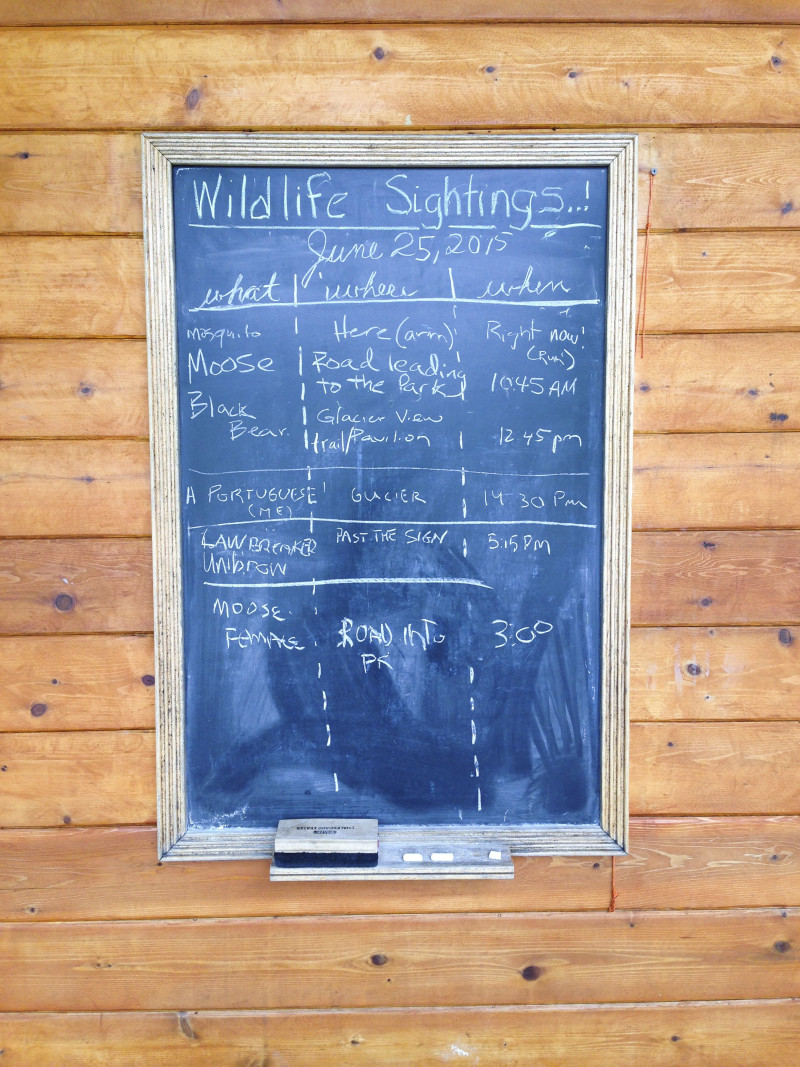 Wildlife Sightings...!
June 25, 2015
what where when
mosquito Here (arm) Right now!
(Run!)
Moose Road leading
to the Park 10:45 AM
Black Glacier View
Bear trail/Pavilion 12:45 pm
A PORTUGUESE! GLACIER 14:30 PM
(ME)
LAWBREAKER PAST THE SIGN 5:15 PM
UNIBROW
MOOSE
FEMALE ROAD INTO 3:00
PK